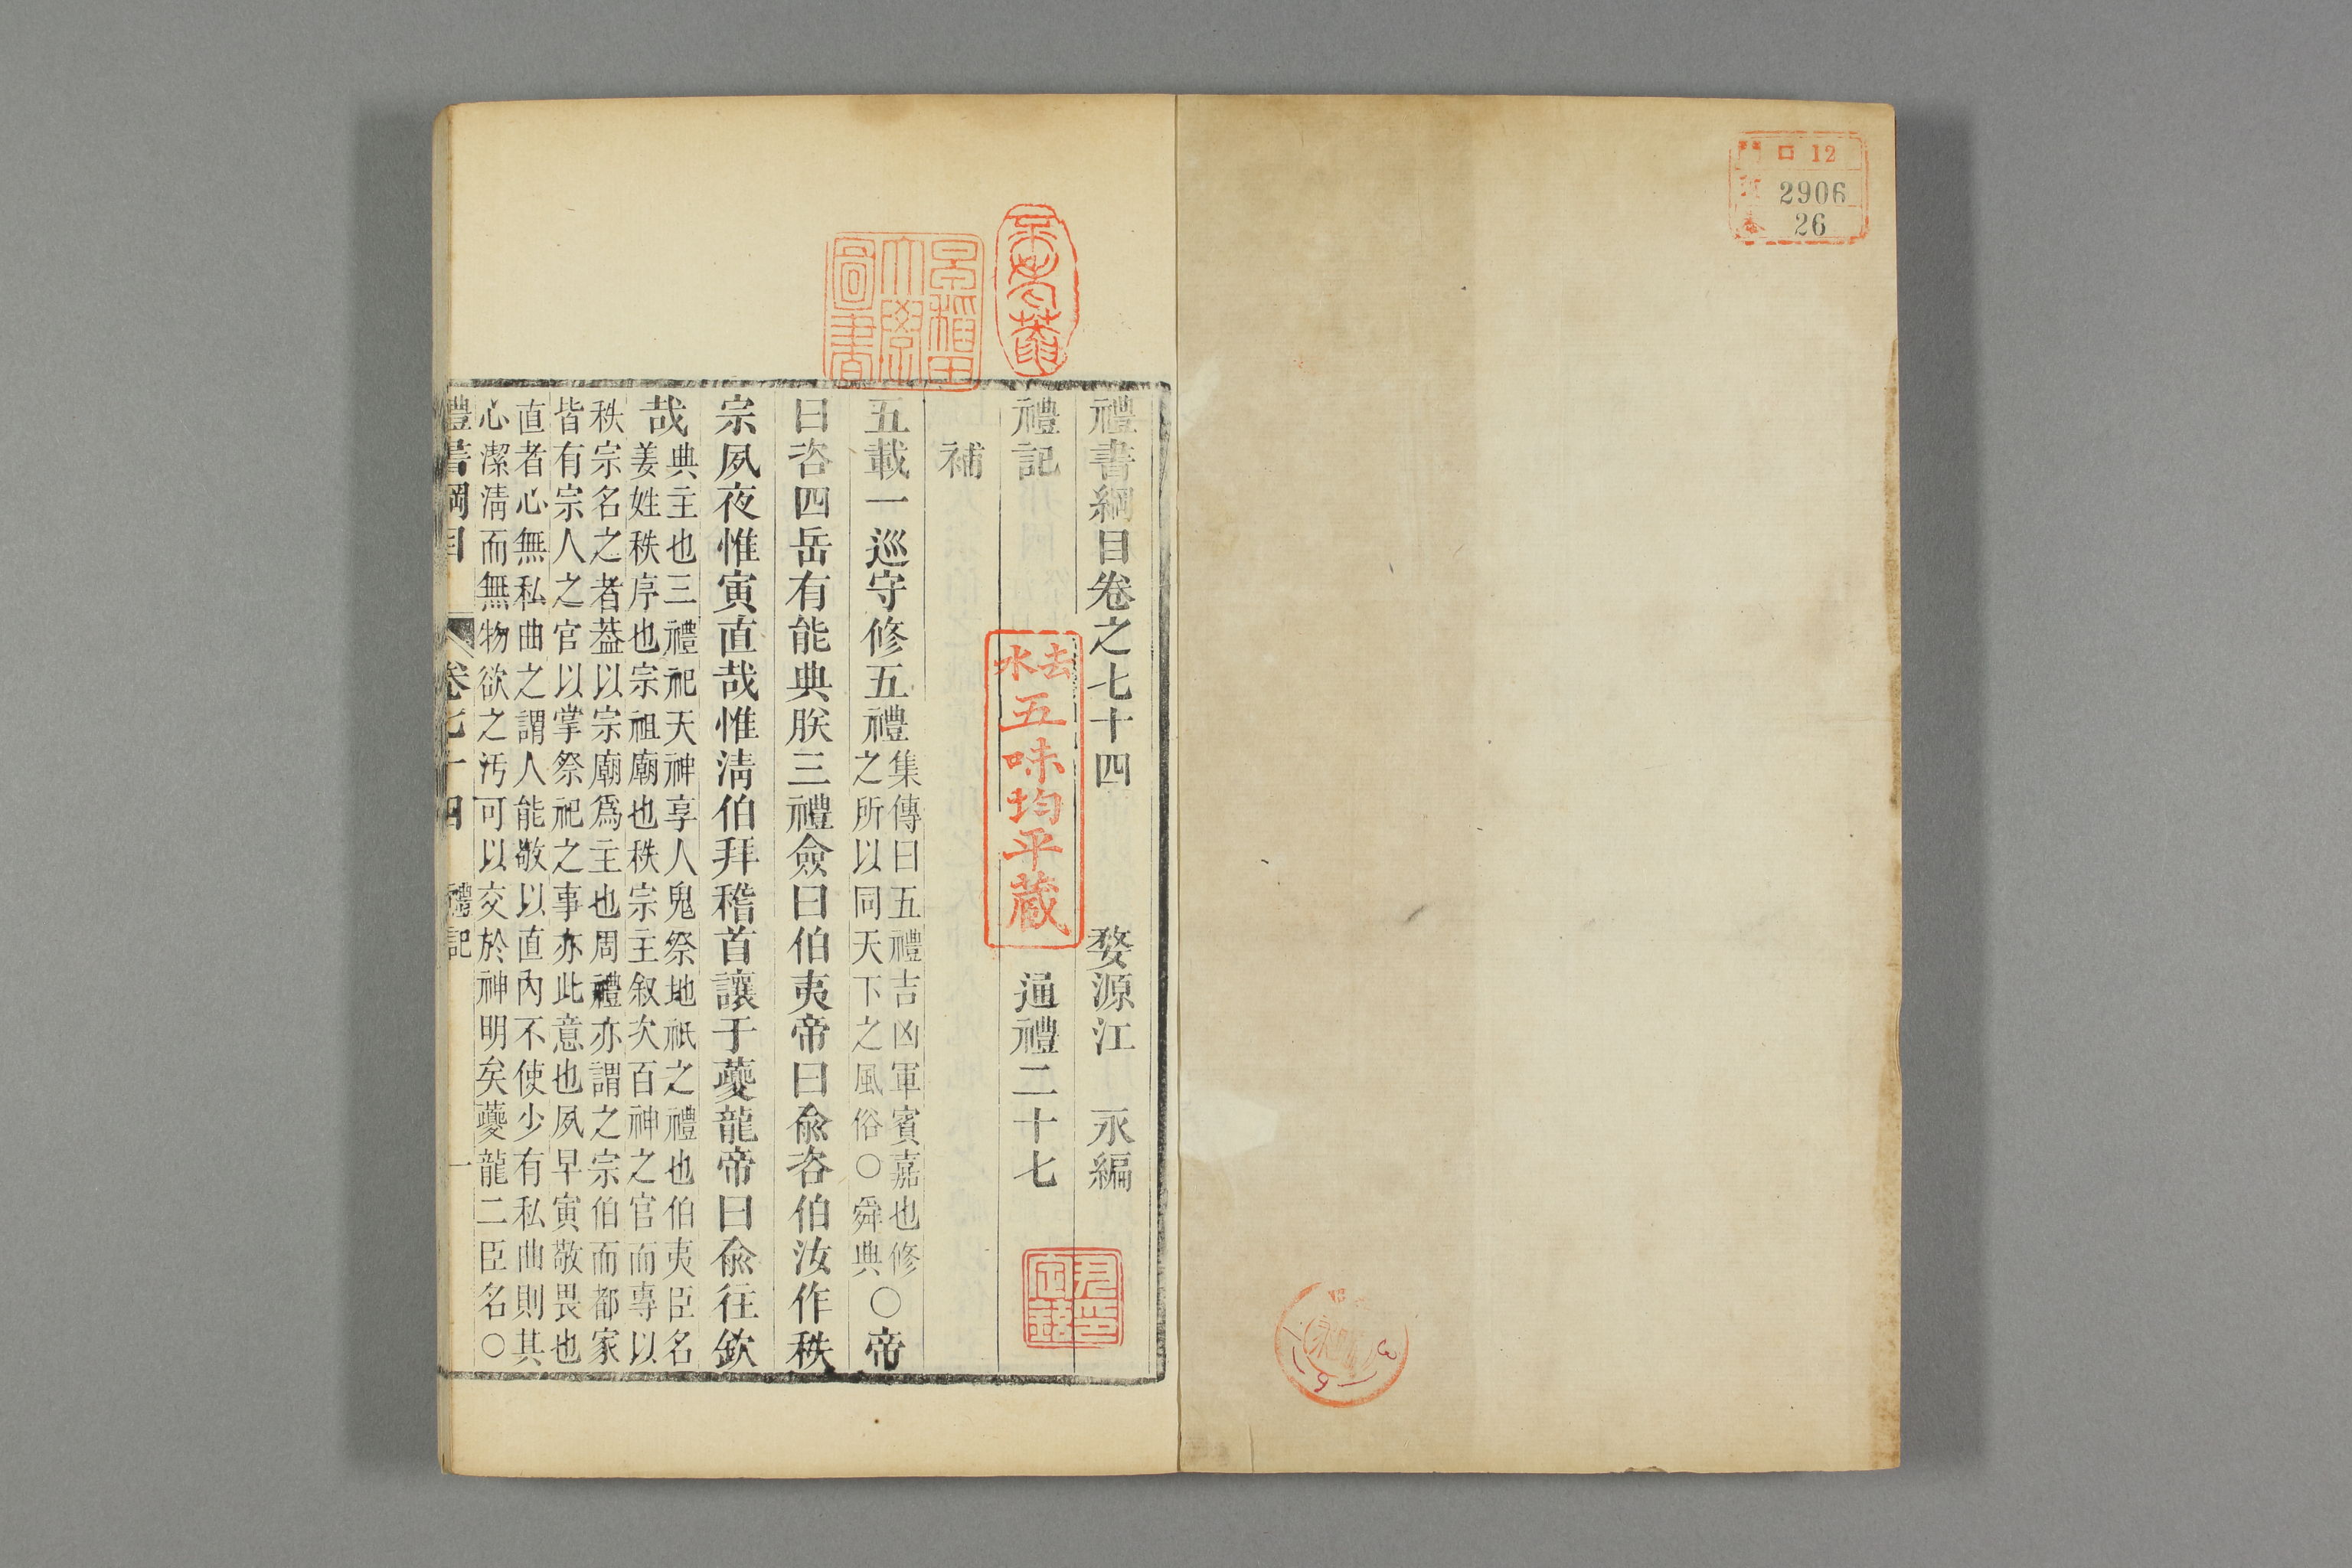 門 ロ 12
號 2906
卷 26
禮書綱目卷之七十四 婺源江 永編
禮記 通禮二十七
補
五載一巡守修五禮集傳曰五禮吉凶軍賓嘉也修之所以同天下之風俗○舜典○帝
曰咨四岳有能典朕三禮僉曰伯夷帝曰兪咨伯汝作秩
宗夙夜惟寅直哉惟淸伯拜稽首讓于夔龍帝曰兪往欽
哉典主也三禮祀天神享人鬼祭地祇之禮也伯夷臣名姜姓秩序也宗祖廟也秩宗主叙次百神之官而專以
秩宗名之者葢以宗廟爲主也周禮亦謂之宗伯而都家
皆有宗人之官以掌祭祀之事亦此意也夙早寅敬畏也
直者心無私曲之謂人能敬以直內不使少有私曲則其
心潔淸而無物欲之汚可以交於神明矣夔龍二臣名○
禮書綱目 卷七十四 禮記 一
早稲田大學圖書
去水五味均平蔵